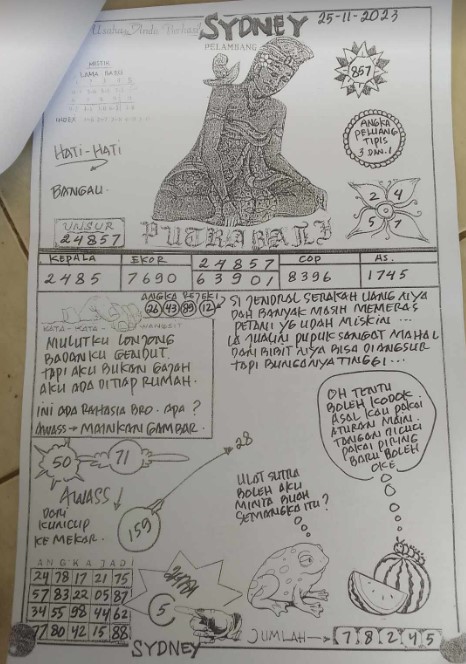 Usaha Anda Berhasil
SYDNEY
25-11-2023
PELAMBANG
MISTIK
LAMA BARU
INDEX
857
ANGKA
PELUANG
TIPIS
3 DAN 1
HATI-HATI
BANGAU.
2 4
5 7
UNSUR
24857
PUTRA BALI
KEPALA
EKOR
24857
COP
AS.
2485
7690
63901
8396
1745
ANGKA REJEKI
26 43 89 12
KATA-KATA WANGSIT
MULUTKU LONJONG
BADANKU GENDUT.
TAPI AKU BUKAN GAJAH
AKU ADA DI TIAP RUMAH.
INI ADA RAHASIA BRO. APA ?
AWASS → MAINKAN GAMBAR.
SI JENDRAL SERAKAH UANG NIYA
DAH BANYAK MASIH MEMERAS
PETANI YG UDAH MISKIN ...
IA JUALIN PUPUK SANGAT MAHAL
DARI BIBIT NIYA BISA DIANGSUR
TAPI BUNGANYA TINGGI ...
OH TENTU
BOLEH KODOK.
ASAL KAU PAKAI
ATURAN MAIN.
TANGAN DICUCI
PAKAI PIRING
BARU BOLEH
OKE
50
71
28
AWASS
DARI
KUNCUP
KE MEKAR.
159
ULAT SUTRA
BOLEH AKU
MINTA BUAH
SEMANGKA ITU ?
ANGKA JADI
24 78 17 21 75
57 83 22 05 87
34 55 98 44 62
77 80 42 15 88
5
SYDNEY
JUMLAH → 7 8 2 4 5